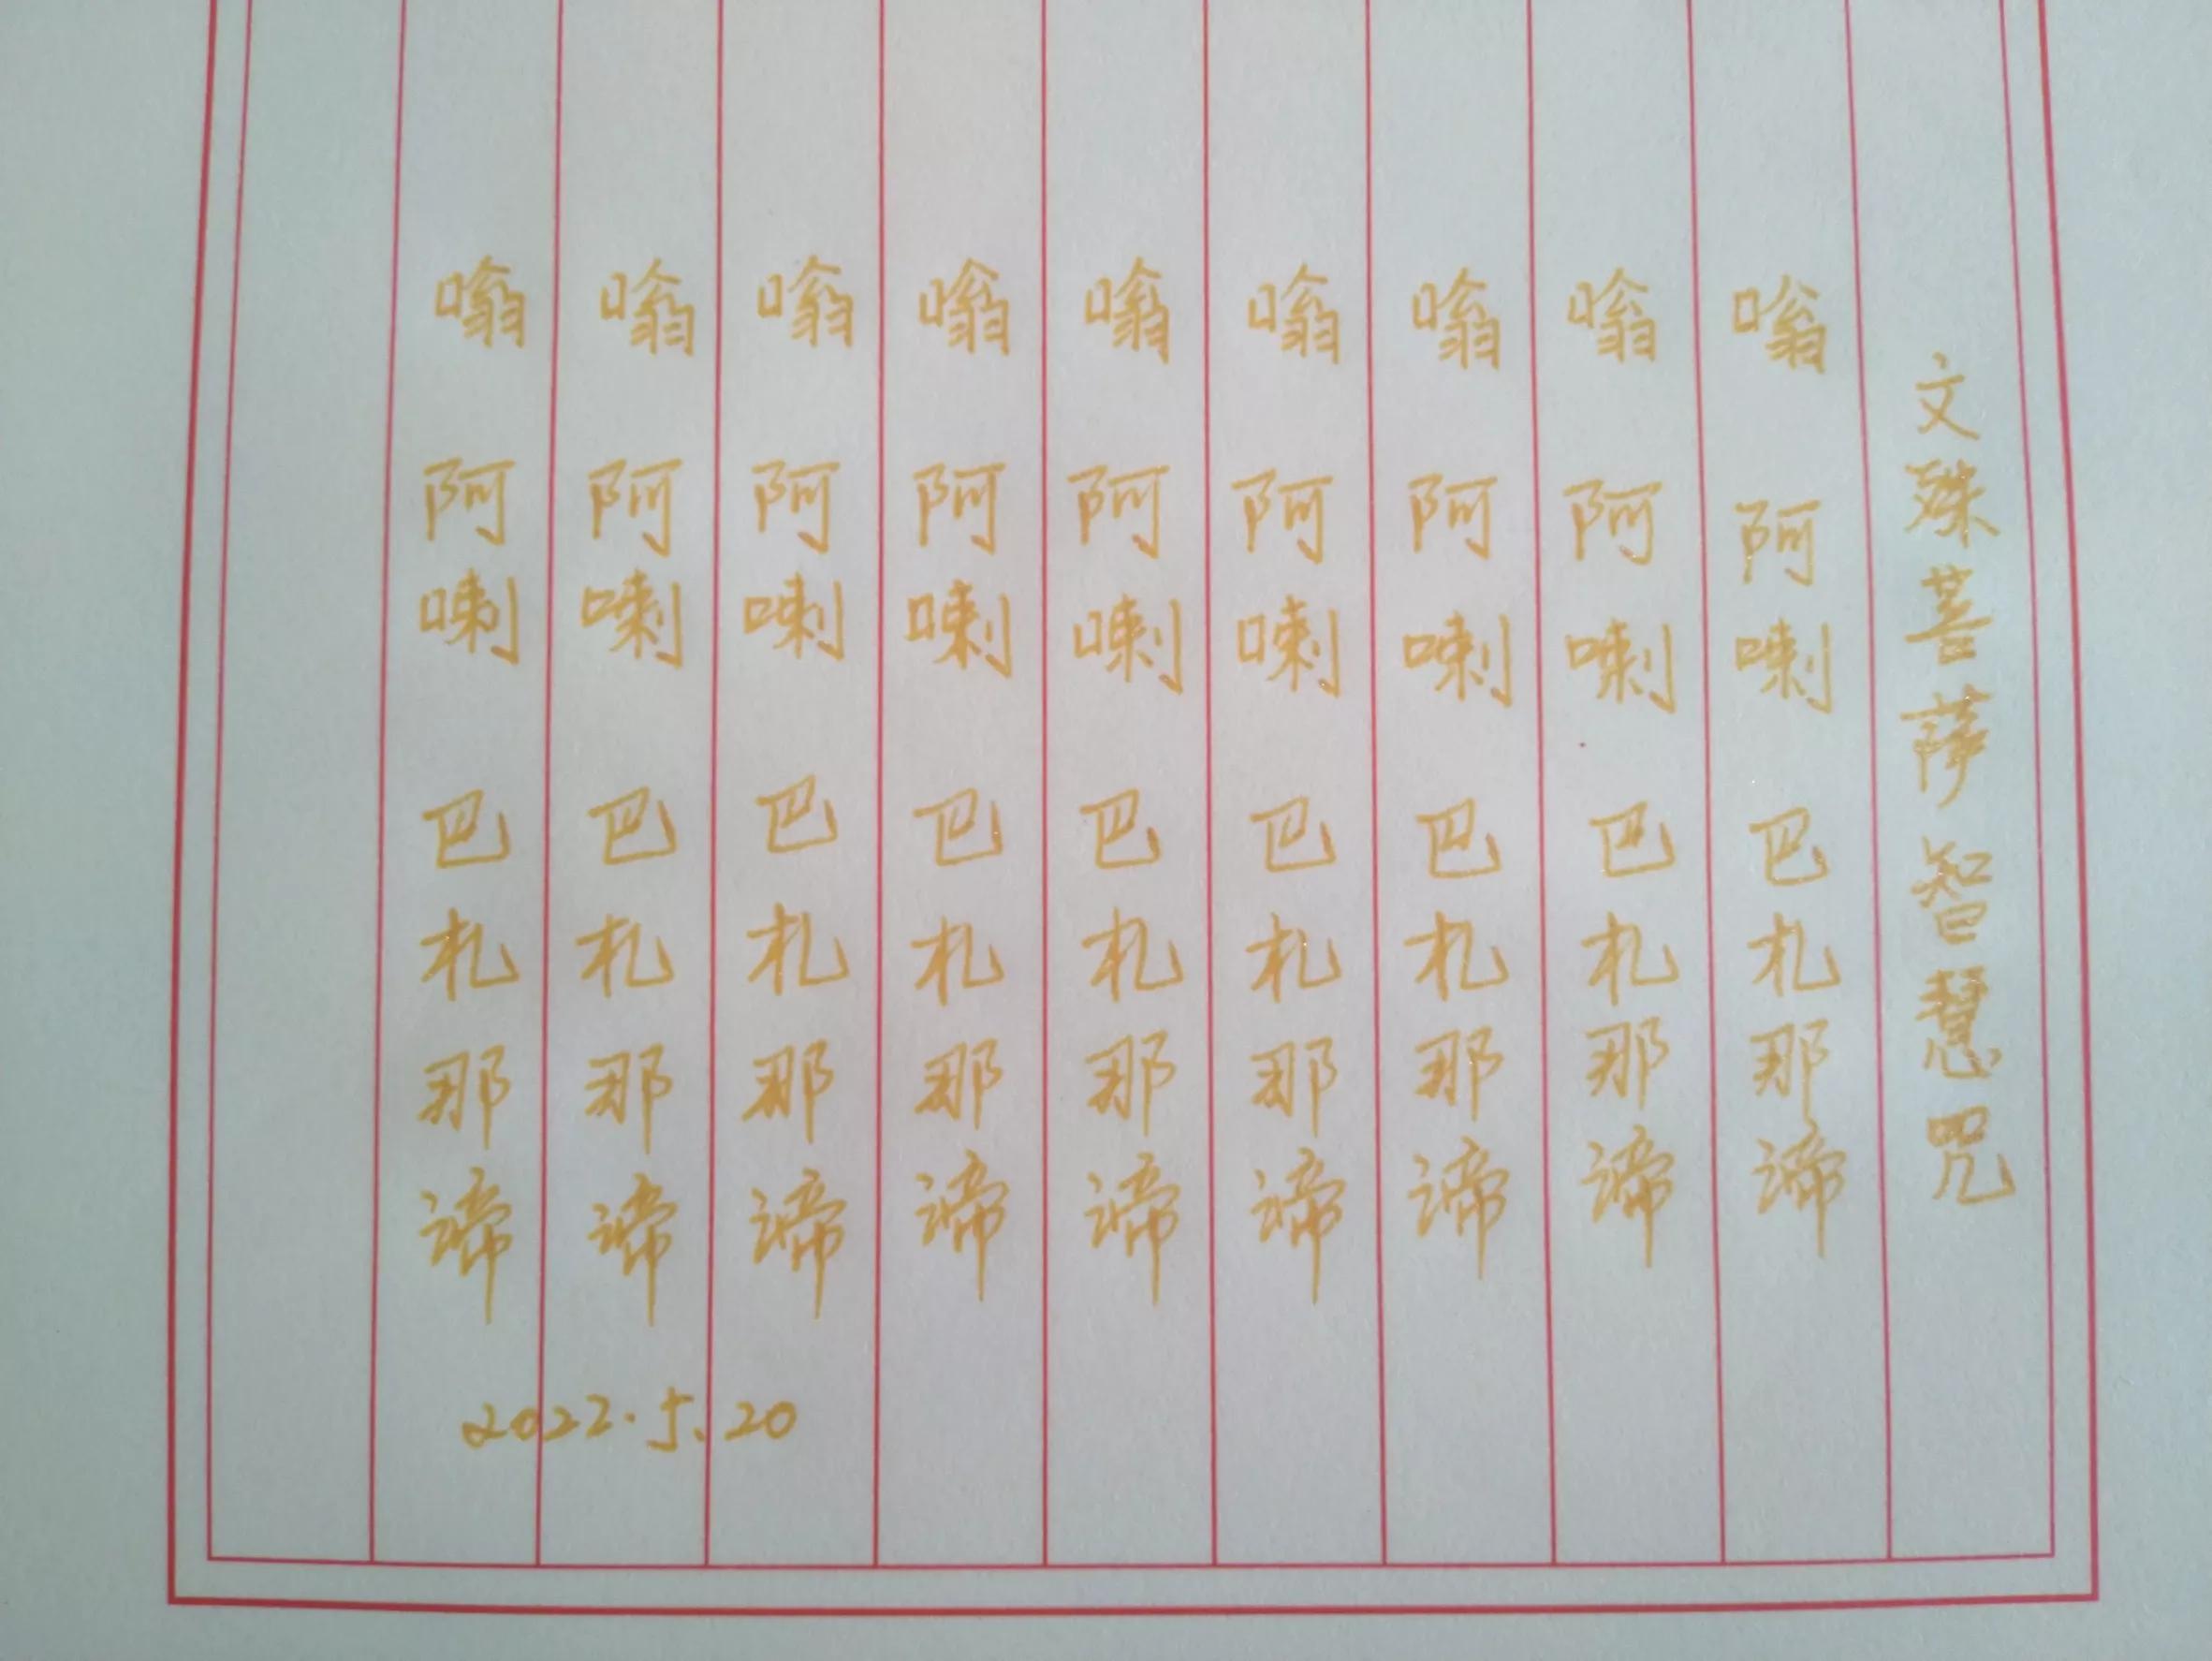 文殊菩萨智慧咒
嗡 阿喇 巴札那谛
嗡 阿喇 巴札那谛
嗡 阿喇 巴札那谛
嗡 阿喇 巴札那谛
嗡 阿喇 巴札那谛
嗡 阿喇 巴札那谛
嗡 阿喇 巴札那谛
嗡 阿喇 巴札那谛
嗡 阿喇 巴札那谛
2022.5.20